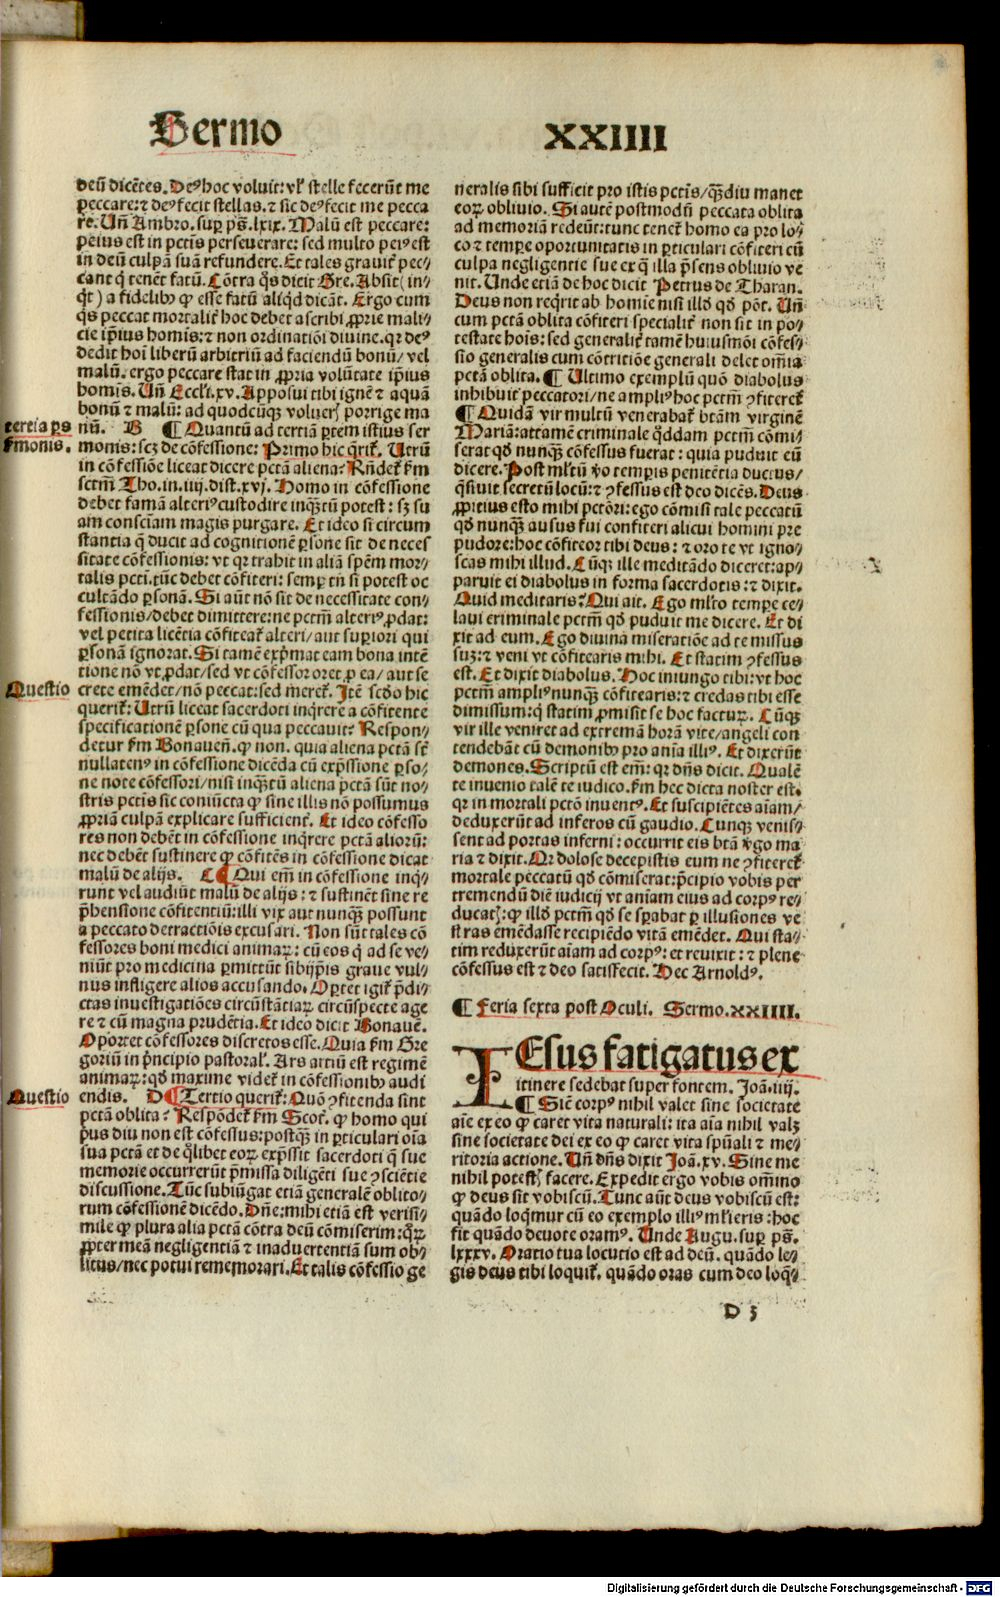 Sermo XXIIII
deū dicētes. Deꝰ hoc voluit: vl' stelle fecerūt me
peccare: ⁊ deꝰ fecit stellas. ⁊ sic deꝰ fecit me pecca
re. Uñ Ambro. suꝑ ps̄. lxix. Malū est peccare:
peius est in pctīs perseverare: sed multo peiꝰ est
in deū culpā suā refundere. Et tales gravit̄ pec⸗
cant q̇ tenēt fatū. Cōtra q̄s dicit Gre. Absit (in⸗
q̇t) a fidelibꝰ ꝙ esse fatū aliq̇d dicāt. Ergo cum
q̇s peccat mortalit̄ hoc debet ascribi ꝓprie mali⸗
cie ip̄ius homīs: ⁊ non ordinatiōi divine. qr deꝰ
dedit hoī liberū arbitriū ad faciendū bonū/ vel
malū. ergo peccare stat in ꝓpria volūtate ip̄ius
homīs. Uñ Eccli. xv. Apposui tibi ignē ⁊ aquā
bonū ⁊ malū: ad quodcūqꝫ volueris porrige ma
tercia ps
nū. B ¶ Quantū ad tertiā ꝑtem istius ser
ẜmonis.
monis: scꝫ de cōfessione: Primo hic q̄rit̄. Utrū
in cōfessiōe liceat dicere pctā aliena? Rñdet̄ ẜm
sctm̄ Tho. in. iiij. dist. xvj. Homo in cōfessione
debet famā alteriꝰ custodire inqꝫtū potest: sꝫ su
am consciam magis purgare. Et ideo si circum
stantia q̄ ducit ad cognitionē ꝑsone sit de neces
sitate cōfessionis: vt qr trahit in aliā spēm mor⸗
talis pctī. tūc debet cōfiteri: semꝑ tñ si potest oc
cultādo ꝑsonā. Si aūt nō sit de necessitate con⸗
fessionis/ debet dimittere: ne pctm̄ alteriꝰ ꝓdat:
vel petita licētia cōfiteat̄ alteri/ aut suꝑiori qui
ꝑsonā ignorat. Si tamē exp̄mat eam bona intē
tione nō vt ꝓdat/ sed vt cōfessor oret ꝓ ea/ aut se
Questio
crete emēdet/ nō peccat: sed meret̄. Itē scd̄o hic
querit̄: Utrū liceat sacerdoti inq̇rere a cōfitente
specificationē ꝑsone cū qua peccavit? Respon⸗
detur ẜm Bonaveñ. ꝙ non. quia aliena pctā sūt
nullatenꝰ in cōfessione dicēda cū exp̄ssione ꝑso⸗
ne note cōfessori/ nisi inqꝫtū aliena pctā sūt no⸗
stris pctīs sic coniūcta ꝙ sine illis nō possumus
ꝓpriā culpā explicare sufficient̄. Et ideo cōfesso
res non debēt in cōfessione inq̇rere pctā aliorū:
nec debēt sustinere ꝙ cōfitēs in cōfessione dicat
malū de alijs. C ¶ Qui em̄ in cōfessione inq̇⸗
runt vel audiūt malū de alijs: ⁊ sustinēt sine re
p̄hensione cōfitentiū: illi vix aut nunqꝫ possunt
a peccato detractiōis excusari. Non sūt tales cō
fessores boni medici animaꝝ: cū eos q̇ ad se ve⸗
niūt pro medicina ꝑmittūt sibijp̄is grave vul⸗
nus infligere alios accusando. Oꝑtet igit̄ p̄di⸗
ctas investigatiōes circūstātiaꝝ circūspecte age
re ⁊ cū magna prudētia. Et ideo dicit Bonavē.
Oportet cōfessores discretos esse. Quia ẜm Gre
goriū in p̄ncipio pastoral'. Ars artiū est regimē
animaꝝ: qd̄ maxime videt̄ in cōfessionibꝰ audi
Questio
endis. D ¶ Tertio querit̄: Quō ꝯfitenda sint
pctā oblita? Respōdet̄ ẜm Scot̄. ꝙ homo qui
p̄us diu non est cōfessus: postqꝫ in ꝑticulari oīa
sua pctā et de q̇libet eoꝝ exp̄ssit sacerdoti q̄ sue
memorie occurrerūt p̄missa diligēti sue ꝯsciētie
discussione. Tūc subiūgat etiā generalē oblito⸗
rum cōfessionē dicēdo. Dñe: mihi etiā est verisi⸗
mile ꝙ plura alia pctā cōtra deū cōmiserim: q̄ꝝ
ꝓpter meā negligentiā ⁊ inadvertentiā sum ob⸗
litus/ nec potui rememorari. Et talis cōfessio ge
neralis sibi sufficit pro istis pctīs/ qꝫdiu manet
eoꝝ oblivio. Si autē postmodū peccata oblita
ad memoriā redeūt: tunc tenet̄ homo ea pro lo⸗
co ⁊ temꝑe oportunitatis in ꝑticulari cōfiteri cū
culpa negligentie sue ex q̄ illa p̄sens oblivio ve
nit. Unde etiā de hoc dicit Petrus de Tharan.
Deus non req̇rit ab homīe nisi illd̄ qd̄ pōt. Uñ
cum pctā oblita cōfiteri specialit̄ non sit in po⸗
testate hoīs: sed generalit̄ tamē huiusmōi cōfes⸗
sio generalis cum cōtritiōe generali delet omīa
pctā oblita. ¶ Ultimo exemplū quō diabolus
inhibuit peccatori/ ne ampliꝰ hoc pctm̄ ꝯfiteret̄
¶ Quidā vir multū venerabat̄ btām virginē
Mariā: attamē criminale q̇ddam pctm̄ cōmi⸗
serat qd̄ nunqꝫ cōfessus fuerat: quia puduit eū
dicere. Post ml'tū v̄o temꝑis penitētia ductus/
q̄sivit secretū locū: ⁊ ꝯfessus est deo dicēs. Deus
ꝓpitius esto mihi pctōri: ego cōmisi tale peccatū
qd̄ nunqꝫ ausus fui confiteri alicui homini pre
pudore: hoc cōfiteor tibi deus: ⁊ oro te vt igno⸗
scas mihi illud. Cūqꝫ ille meditādo diceret: ap⸗
paruit ei diabolus in forma sacerdotis: ⁊ dixit.
Quid meditaris? Qui ait. Ego ml'to temꝑe ce⸗
lavi criminale pctm̄ qd̄ puduit me dicere. Et di
xit ad eum. Ego divina miseratiōe ad te missus
suꝫ: ⁊ veni vt cōfitearis mihi. Et statim ꝯfessus
est. Et dixit diabolus. Hoc iniungo tibi: vt hoc
pctm̄ ampliꝰ nunqꝫ cōfitearis: ⁊ credas tibi esse
dimissum: q̇ statim ꝓmisit se hoc facturꝝ. Cūqꝫ
vir ille veniret ad extremā horā vite/ angeli con
tendebāt cū demonibꝰ pro aīa illiꝰ. Et dixerūt
demones. Scriptū est em̄: qr dñs dicit. Qualē
te invenio talē te iudico. ẜm hec dicta noster est.
qr in mortali pctō inventꝰ. Et suscipiētes aīam/
deduxerūt ad inferos cū gaudio. Cunqꝫ venis⸗
sent ad portas inferni: occurrit eis btā v̇go ma
ria ⁊ dixit. Qr dolose decepistis eum ne ꝯfiteret̄
mortale peccatū qd̄ cōmiserat: p̄cipio vobis per
tremendū diē iudicij vt aniam eius ad corpꝰ re⸗
ducatis: ꝙ illd̄ pctm̄ qd̄ se sꝑabat ꝑ illusiones ve
stras emēdasse recipiēdo vitā emēdet. Qui sta⸗
tim reduxerūt aīam ad corpꝰ: et revixit: ⁊ plene
cōfessus est ⁊ deo satisfecit. Hec Arnoldꝰ.
¶ Feria sexta post Oculi. Sermo. XXIIII.
IEsus fatigatus ex
itinere sedebat super fontem. Joā. iiij.
¶ Sic̄ corpꝰ nihil valet sine societate
aīe ex eo ꝙ caret vita naturali: ita aīa nihil valꝫ
sine societate dei ex eo ꝙ caret vita spūali ⁊ me⸗
ritoria actione. Uñ dñs dixit Joā. xv. Sine me
nihil potestis facere. Expedit ergo vobis omīno
ꝙ deus sit vobiscū. Tunc aūt deus vobiscū est:
quādo loq̇mur cū eo exemplo illiꝰ ml'ieris: hoc
fit quādo devote oramꝰ. Unde Augu. suꝑ ps̄.
lxxxv. Oratio tua locutio est ad deū. quādo le⸗
gis deus tibi loquit̄. quādo oras cum deo loq̇⸗
D 3
Digitalisierung gefördert durch die Deutsche Forschungsgemeinschaft - DFG